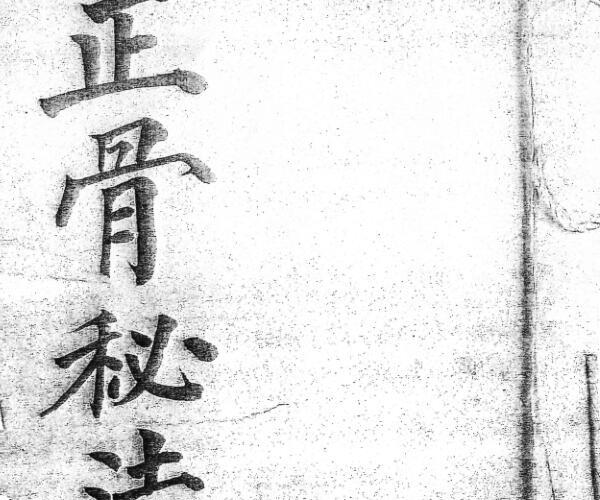 正骨秘法